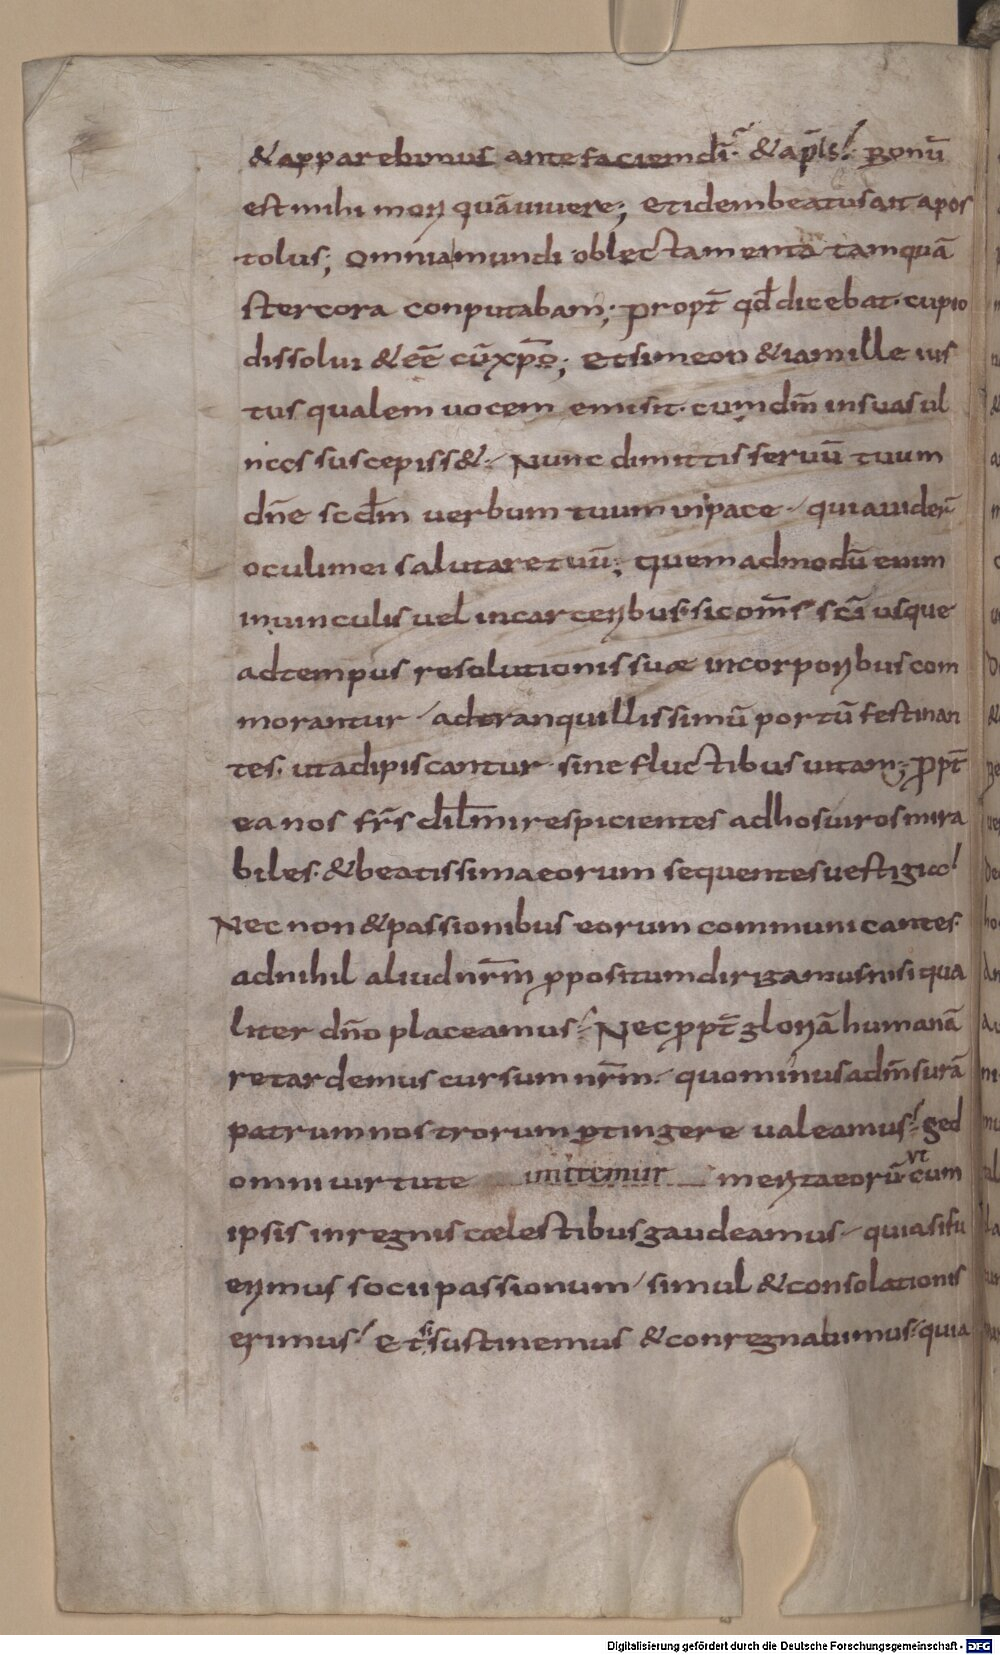 & apparebimus ante faciem dī· & apl̄s· Bonū
est mihi mori quā uiuere; Et idem beatus ait apos
tolus; Omnia mundi oblectamenta tamquā
stercora conputabam; propt̄ qd̄ dicebat· cupio
dissolui & eē cū xp̄o; Et simeon & iam ille ius
tus qualem uocem emisit· cum dn̄m in suas ul
nas suscepiss&· Nunc dimittis seruū tuum
dn̄e scdm̄ uerbum tuum in pace· quia uider̄
oculi mei salutare tuū; quemadmodū enim
in uinculis uel in carceribus· sic om̄s scī usque
ad tempus resolutionis suae in corporibus com
morantur· ad tranquillissimū portū festinan
tes· ut adipiscantur sine fluctibus uitam; ꝓpt̄
ea nos fr̄s dil̄mi respicientes ad hos uiros mira
biles· & beatissima eorum sequentes uestigia·
Nec non & passionibus eorum communicantes·
ad nihil aliud nr̄m ꝓpositum dirizamus nisi qua
liter dn̄o placeamus· Nec ꝓpt̄ gloriā humanā
retardemus cursum nr̄m· quominus ad m̄surā
patrum nostrorum ꝑtingere ualeamus· Sed
omni uirtute imitemur merita eorū ut cum
ipsis in regnis caelestibus gaudeamus· quia si fu
erimus socii passionum· simul & consolationis
erimus· Et si sustinemus & conregnabimus· quia
Digitalisierung gefördert durch die Deutsche Forschungsgemeinschaft - DFG